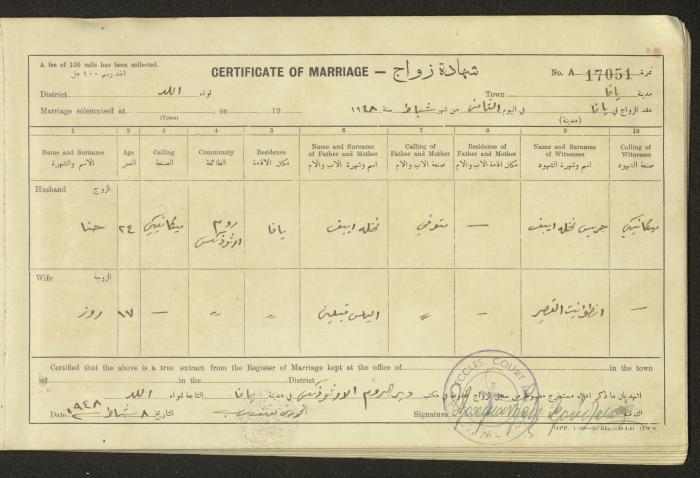 A fee of 100 mils has been collected.
CERTIFICATE OF MARRIAGE — شهادة زواج
No. A 17051 نمرة
District لواء اللد
Town مدينة يافا
Marriage solemnised at on 19
عقد الزواج في يافا في اليوم الثامن من شهر شباط سنة ١٩٤٨
(Town) (مدينة)
1 2 3 4 5 6 7 8 9 10
Name and Surname Age Calling Community Residence Name and Surname of Father and Mother Calling of Father and Mother Residence of Father and Mother Name and Surname of Witnesses Calling of Witnesses
الاسم والشهرة العمر الصنعة الطائفة مكان الاقامة اسم وشهرة الاب والام صنعة الاب والام مكان اقامة الاب والام اسم وشهرة الشهود صنعة الشهود
Husband الزوج
حنا ٢٤ ميكانيكي روم ارثوذكس يافا نخله متوفي — جريس نخله ميكانيكي
Wife الزوجة
روز ١٧ — " " الياس " انطوانيت —
Certified that the above is a true extract from the Register of Marriage kept at the office of in the town
of in the District
في مكتب دير الروم الارثوذكس في مدينة يافا التابعة للواء اللد
Date التاريخ ٨ شباط ١٩٤٨
Signature
ECCLES. COURT